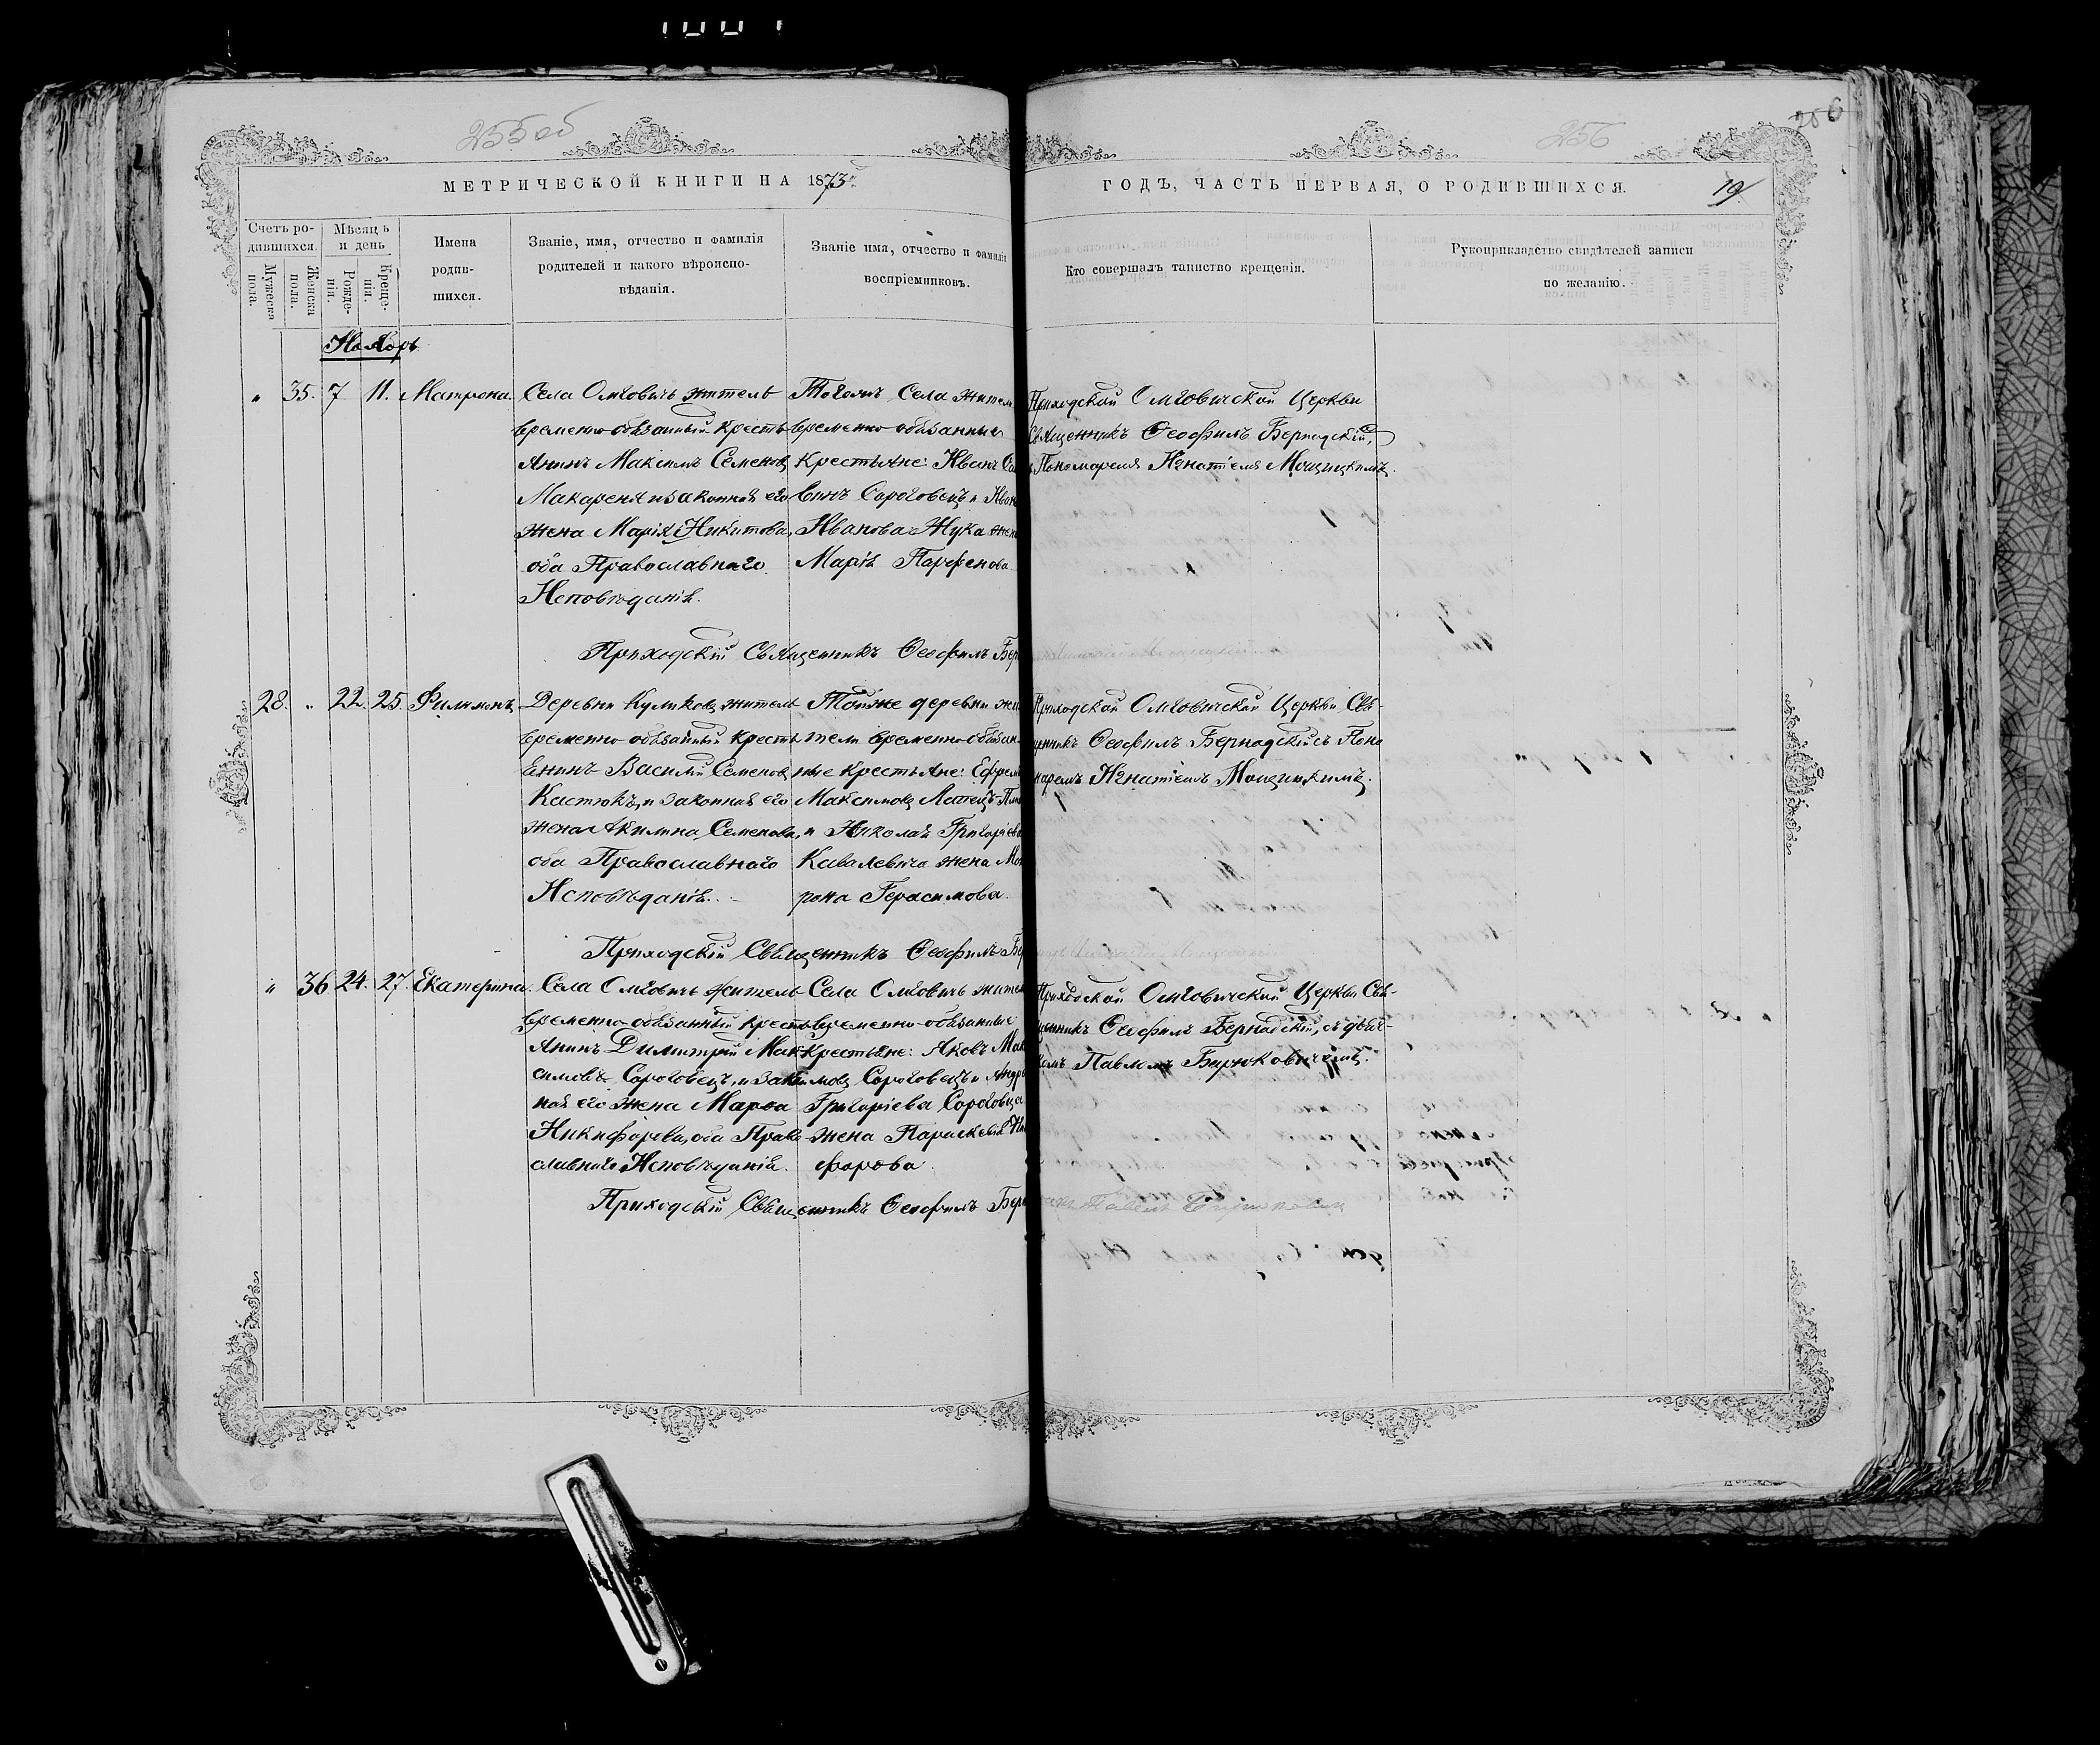 255 об
256
256
МЕТРИЧЕСКОЙ КНИГИ НА 1873й
ГОДЪ, ЧАСТЬ ПЕРВАЯ, О РОДИВШИХСЯ.
19
Счетъ родившихся.
Мѣсяцъ и день
Мужеска пола.
Женска пола.
Рожденія.
Крещенія.
Имена
родив-
шихся.
Званіе, имя, отчество и фамилія
родителей и какого вѣроиспо-
вѣданія.
Званіе имя, отчество и фамилія
воспріемниковъ.
Кто совершалъ таинство крещенія.
Рукоприкладство свидѣтелей записи
по желанію.
Ноябрь
„ 35. 7 11. Матрона.
Села Омговичъ житель
временно-обязанный кресть
янинъ Максимъ Семеновъ
Макареня и законная его
жена Марія Никитова,
оба Православнаго
Исповѣданія.
Тогожъ Села жители
временно обязанные
Крестьяне: Иванъ
винъ Сороговецъ и Иван
Иванова Жука жена
Марія Парфенова
Приходской Омговичской Церкви
Священникъ Ѳеофилъ Бернадскій,
Пономаремъ Игнатіемъ Мощицкимъ.
Приходскій Священникъ Ѳеофилъ Бер
28. „ 22. 25. Филимонъ
Деревни Куликовъ житель
временно обязанный кресть
янинъ Василій Семеновъ
Кастюкъ, и законная его
жена Акилина Семенова,
оба Православнаго
Исповѣданія.
Тойже деревни жи
тели временно-обязан-
ные крестьяне: Ефремъ
Максимовъ
и Николая Григоріева
Кавалевича жена Мат
рона Герасимова.
Приходской Омговичской Церкви Свя-
щенникъ Ѳеофилъ Бернадскій съ Поно
маремъ Игнатіемъ Мощицкимъ.
Приходскій Священникъ Ѳеофилъ Бе
„ 36 24. 27. Екатерина.
Села Омговичъ житель
временно-обязанный кресть
янинъ Димитрій Мак
симовъ Сороговецъ, и закон
ная его жена Марѳа
Никифорова, оба Право
славнаго Исповѣданія.
Села Омговичъ жители
временно-обязанные
крестьяне: Яковъ Мак
симовъ Сороговецъ и Андре
Григоріева Сороговца
жена Параскевія Ни
форова
Приходской Омговичской Церкви Свя-
щенникъ Ѳеофилъ Бернадскій, съ дьяч-
комъ Павломъ Бирюковичемъ.
Приходскій Священникъ Ѳеофилъ Берн